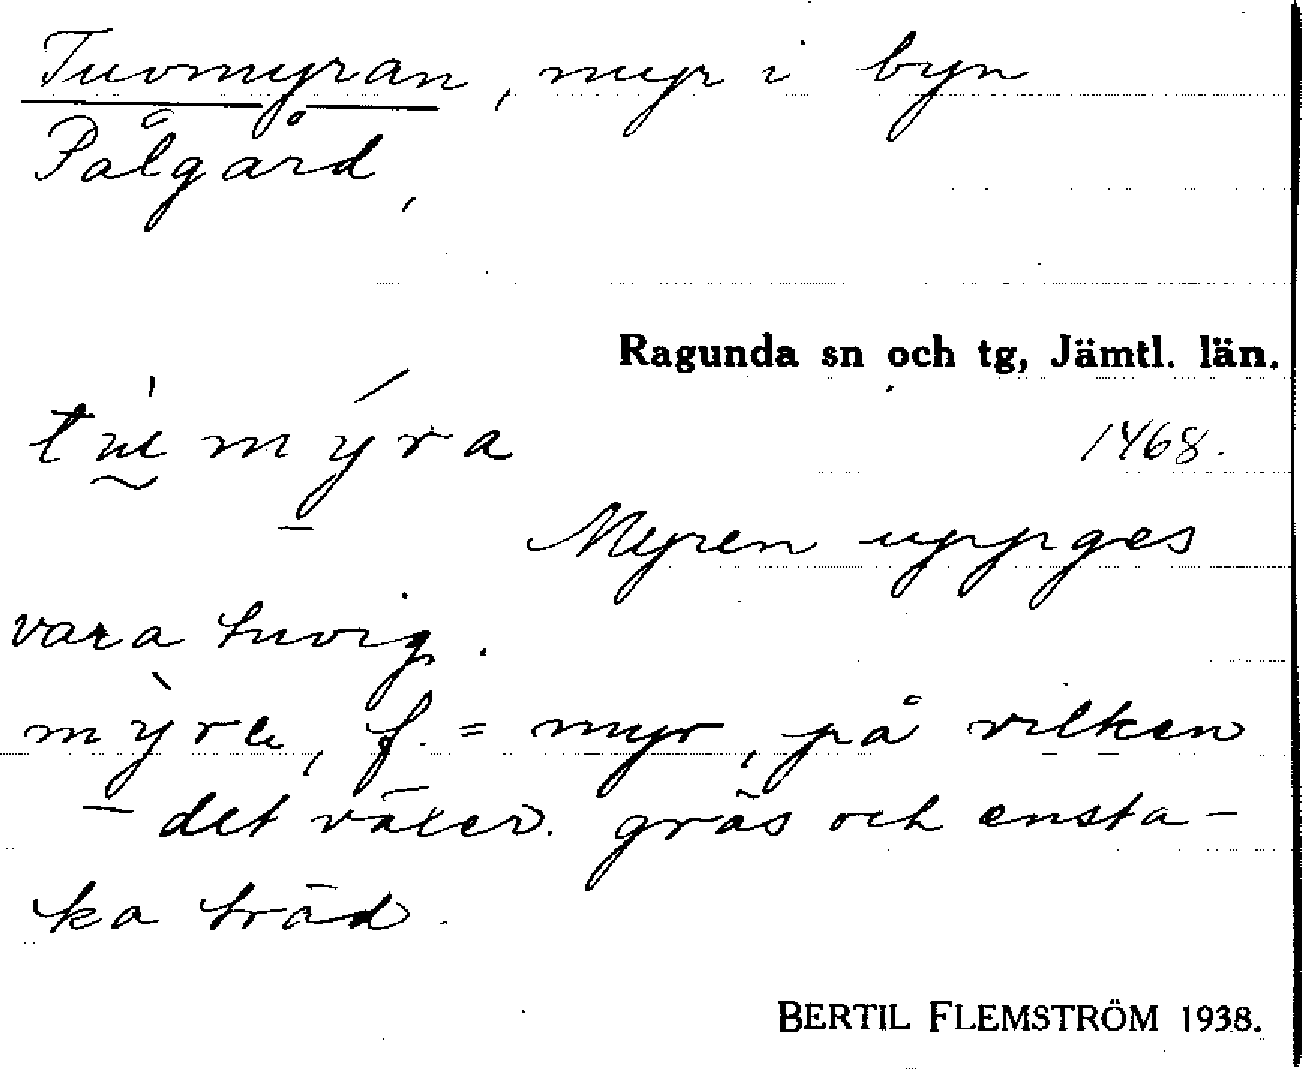 Tuvmyran, myr i byn
Pålgård,
Ragunda sn och tg, Jämtl. län.
mýra
1468.
Myren uppges
vara tuvig.
mỳre, f. = myr, på vilken
det växer gräs och ensta-
ka träd.
BERTIL FLEMSTRÖM 1938.